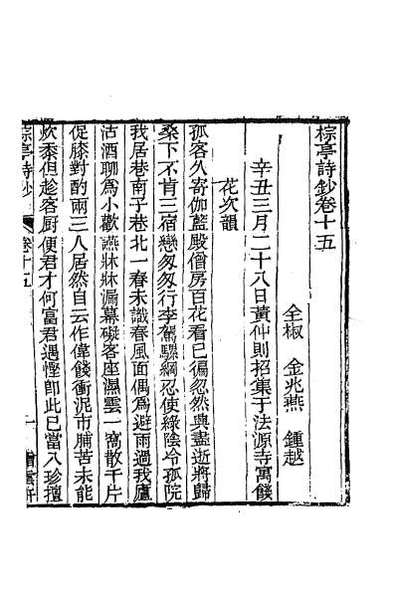 棕亭詩鈔卷十五
全椒 金兆燕 鍾越
辛丑三月二十八日黃仲則招集于法源寺寓餞
花次韻
孤客久寄伽藍殿僧房百花看已徧忽然興盡逝將歸
桑下不肯三宿戀匆匆行李駕騾綱忍使綠陰令孤院
我居巷南子巷北一春未識春風面偶為避雨過我廬
沽酒聊為小歡讌牀牀漏幕礙客座濕雲一窩散千片
促膝對酌兩三人居然自云作偉餞衝泥市脯苦未能
炊黍但趁客厨便君才何富君遇慳即此已當八珍擅
棕亭詩鈔 卷十五 一